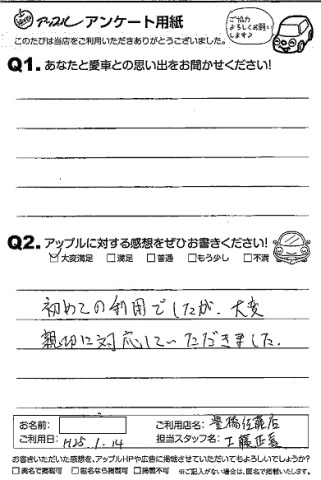 アップル アンケート用紙
このたびは当店をご利用いただきありがとうございました。
ご協力
よろしくお願い
します♪
Q1. あなたと愛車との思い出をお聞かせください!
Q2. アップルに対する感想をぜひお書きください!
☑大変満足 □満足 □普通 □もう少し □不満
初めての利用でしたが、大変
親切に対応していただきました。
お名前:
ご利用店名: 豊橋佐藤店
ご利用日: H25.1.14
担当スタッフ名: 工藤正義
お書きいただいた感想を、アップルHPや広告に掲載させていただいてもよろしいでしょうか?
□実名で掲載可 □匿名なら掲載可 □掲載不可 ※ご記入がない場合は、匿名で掲載いたします。